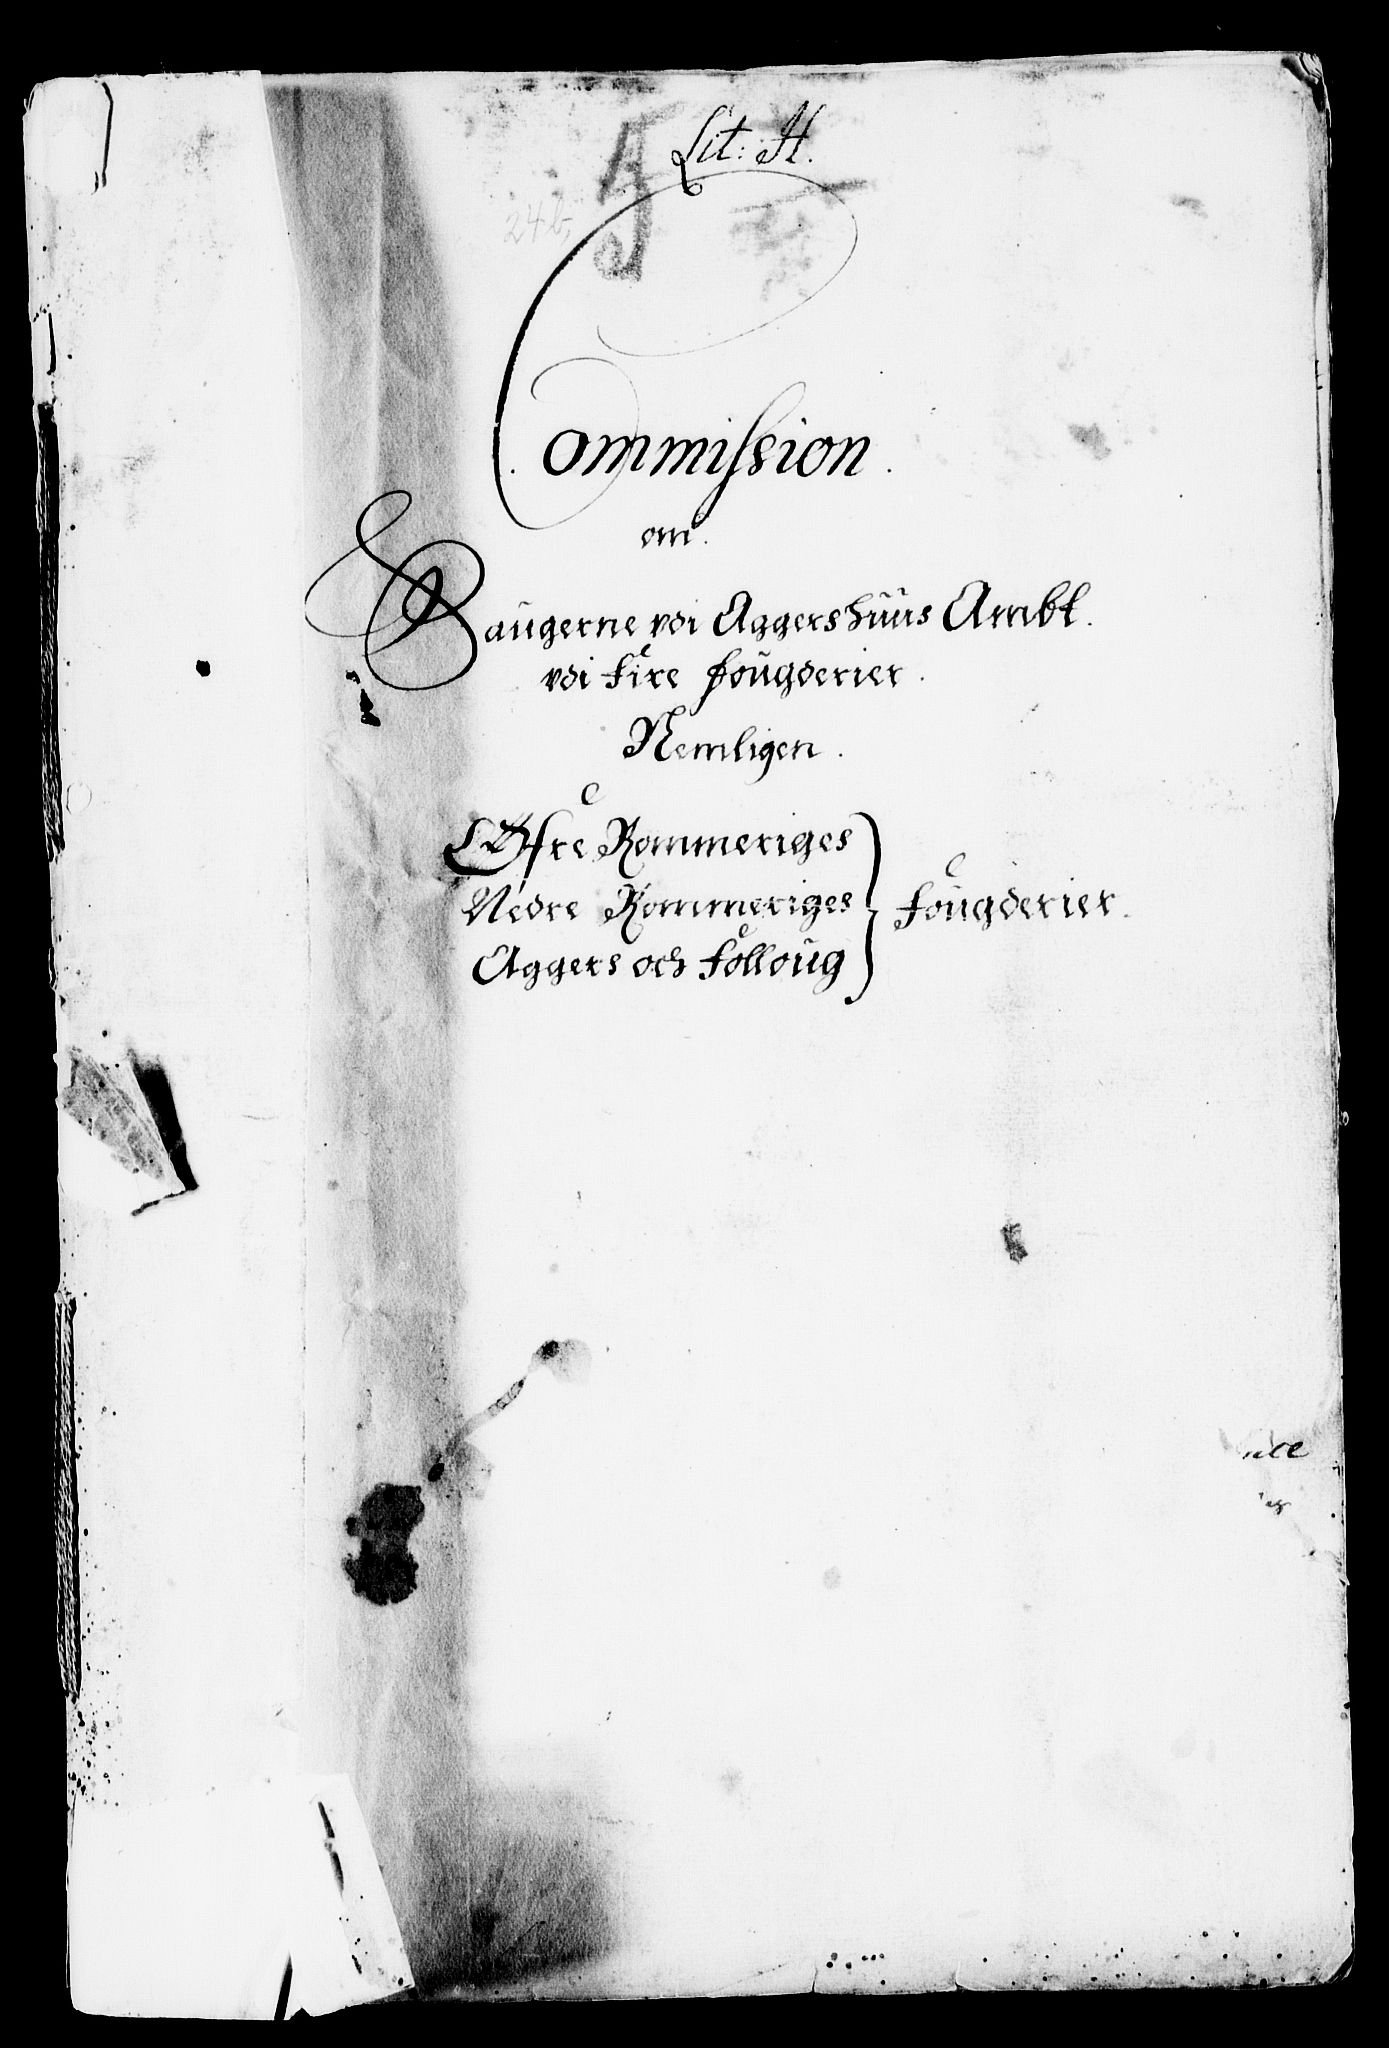 Lit: H.
24b,
5
Commission.
om.
Saugerne vdi Aggershuus Ambt.
vdi fire fougderier.
Nemligen.
Øfre Rommeriges
Nedre Rommeriges } fougderier.
Aggers och folloug